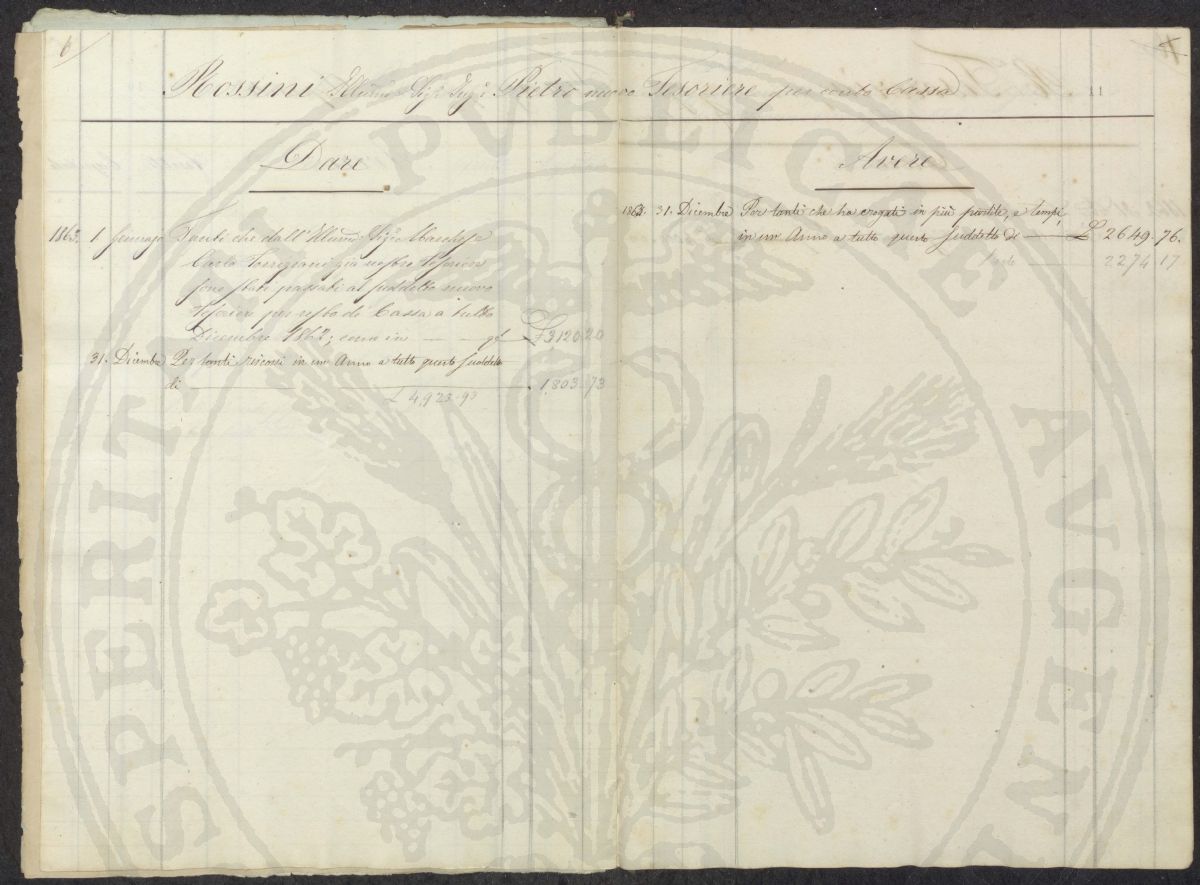 6
Rossini Illmo Sigr Ingr Pietro nuovo Tesoriere per conto Cassa
11
Dare
1863. 1 Gennajo Tanti che dall' Illmo Sigr Marchese
Carlo Torregiani già nostro Tesorien
sono stati passati al suddetto nuovo
Tesorien per resto di Cassa a tutto
Dicembre 1862; come in £ 3120.20
31. Dicembre Per tanti riscossi in un Anno a tutto questo suddetto
di 1,803.73
£ 4,923.93
Avere
1863. 31. Dicembre Per tanti che ha erogati in più partite, e tempi,
in un Anno a tutto questo suddetto dì £ 2649.76.
2274.17
SPERITAS PVBLICAE AVGEN